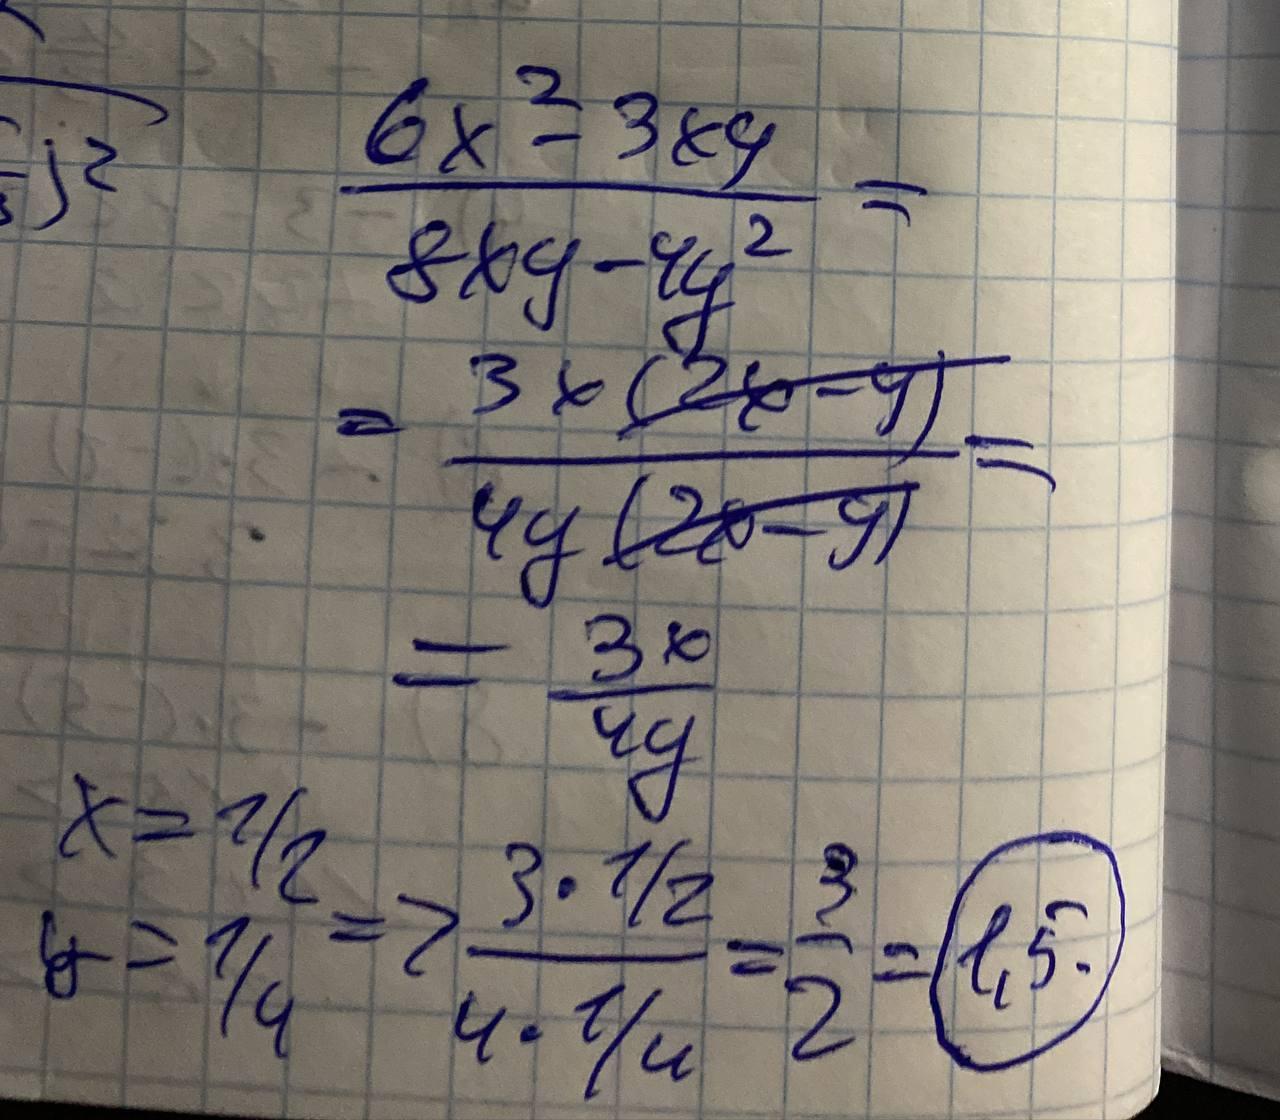 )²
6x² - 3xy
8xy - 4y²
=
= 3x(2x - y)
4y(2x - y)
=
= 3x
4y
x = 1/2
y = 1/4
=> 3 · 1/2
4 · 1/4
= 3
2
= 1,5.